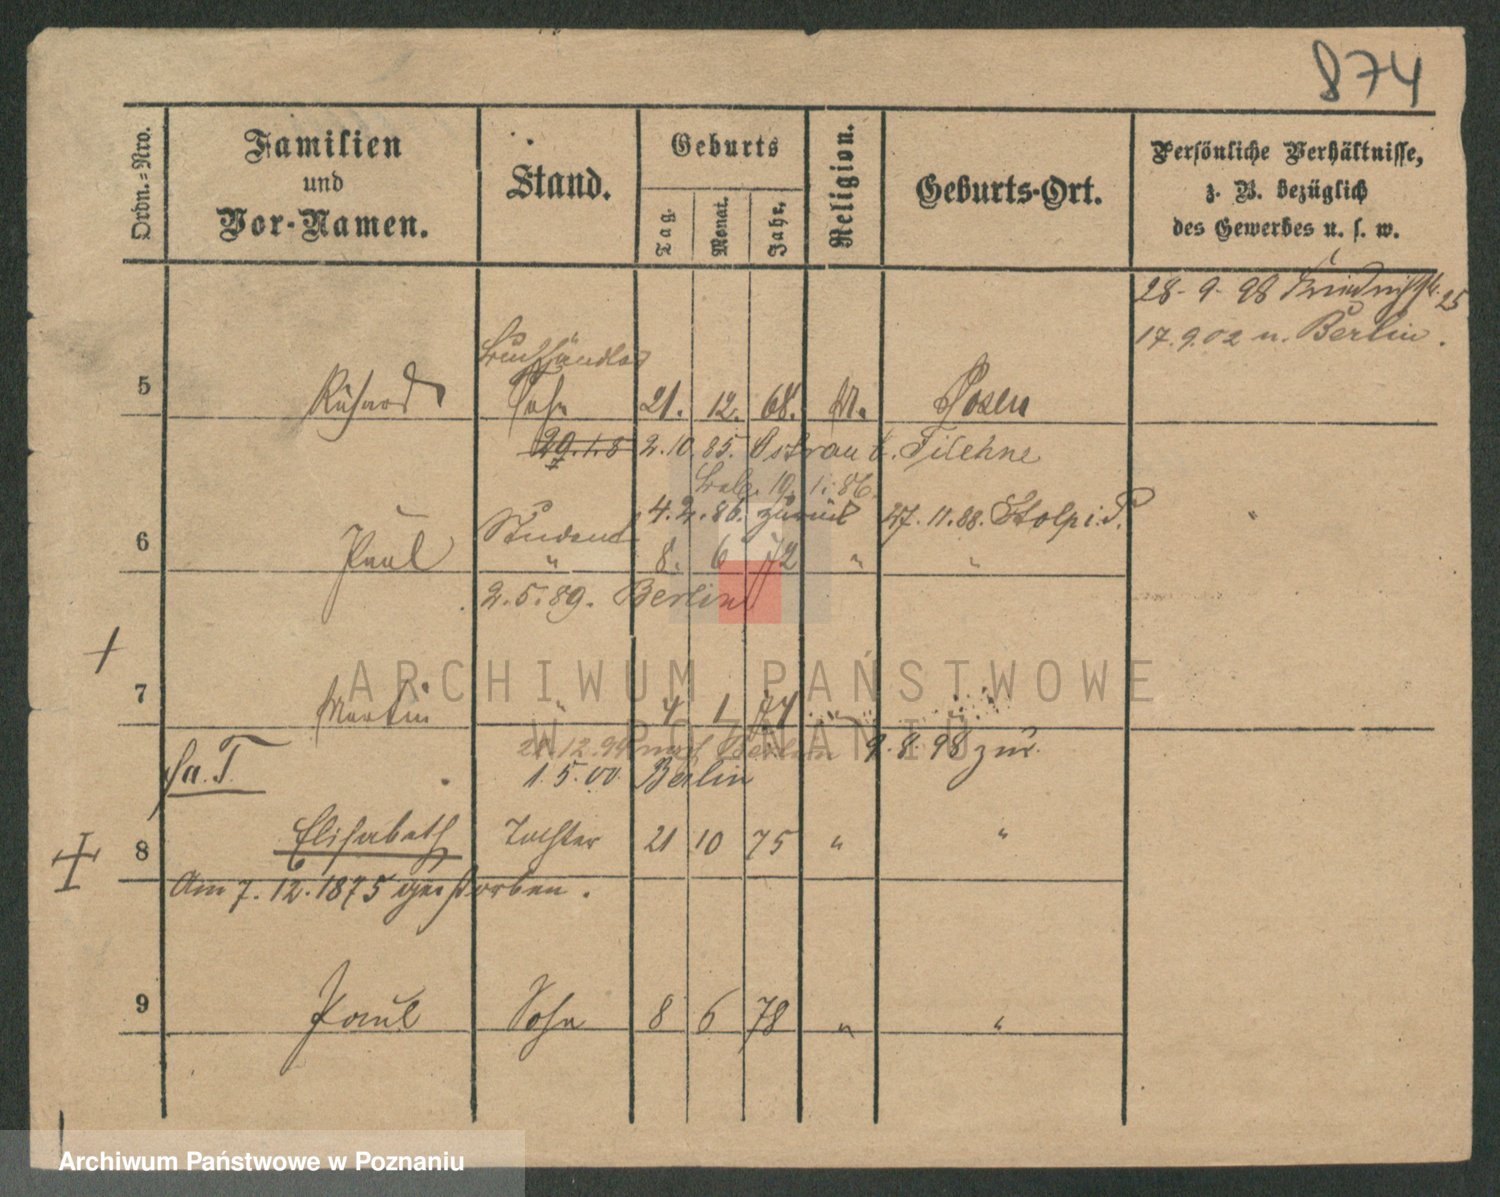 874
Ordn.-Nro.
Familien
und
Vor-Namen.
Stand.
Geburts
Tag.
Monat.
Jahr.
Religion.
Geburts-Ort.
Persönliche Verhältnisse,
z. B. bezüglich
des Gewerbes u. s. w.
28. 9. 98 Friedrichstr. 25
17. 9. 02 n. Berlin.
Buchhändler
5 Richard Sohn 21. 12. 68. M. Posen
29. 1. 8 2. 10. 85. Ostrau b. Filehne
19. 1. 86.
4. 2. 86. zurück 27. 11. 88. Stolp i. P.
Student
6 Paul " 8. 6 72 " "
2. 5. 89. Berlin
7 Martin " 4 1 74 " "
21. 12. 94 nach Berlin 9. 8. 98 zur.
1. 5. 00. Berlin
8 Elisabeth Tochter 21 10 75 " "
Am 7. 12. 1875 gestorben.
9 Paul Sohn 8 6 78 " "
ARCHIWUM PAŃSTWOWE
W POZNANIU
Archiwum Państwowe w Poznaniu